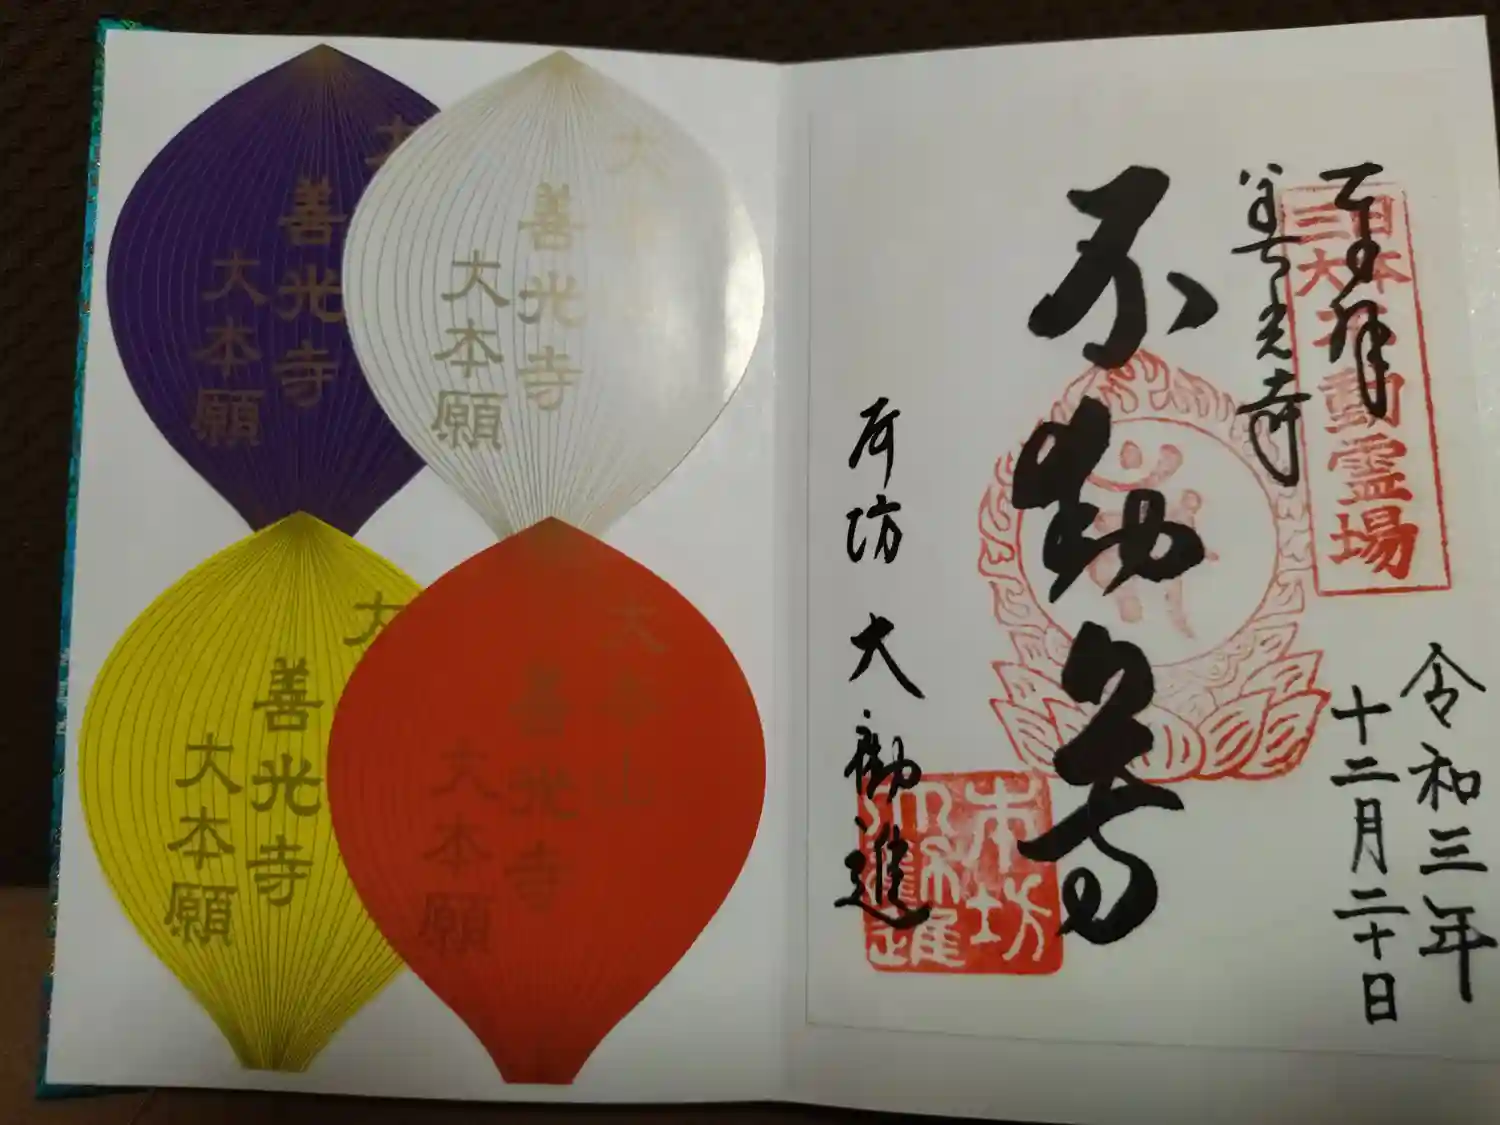 奉拝
善光寺
日本
三大不動霊場
不動尊
本坊 大勧進
本坊
大勧進
令和三年
十二月二十日
大
善光寺
大本願
大本山
善光寺
大本願
大
善光寺
大本願
大本山
善光寺
大本願